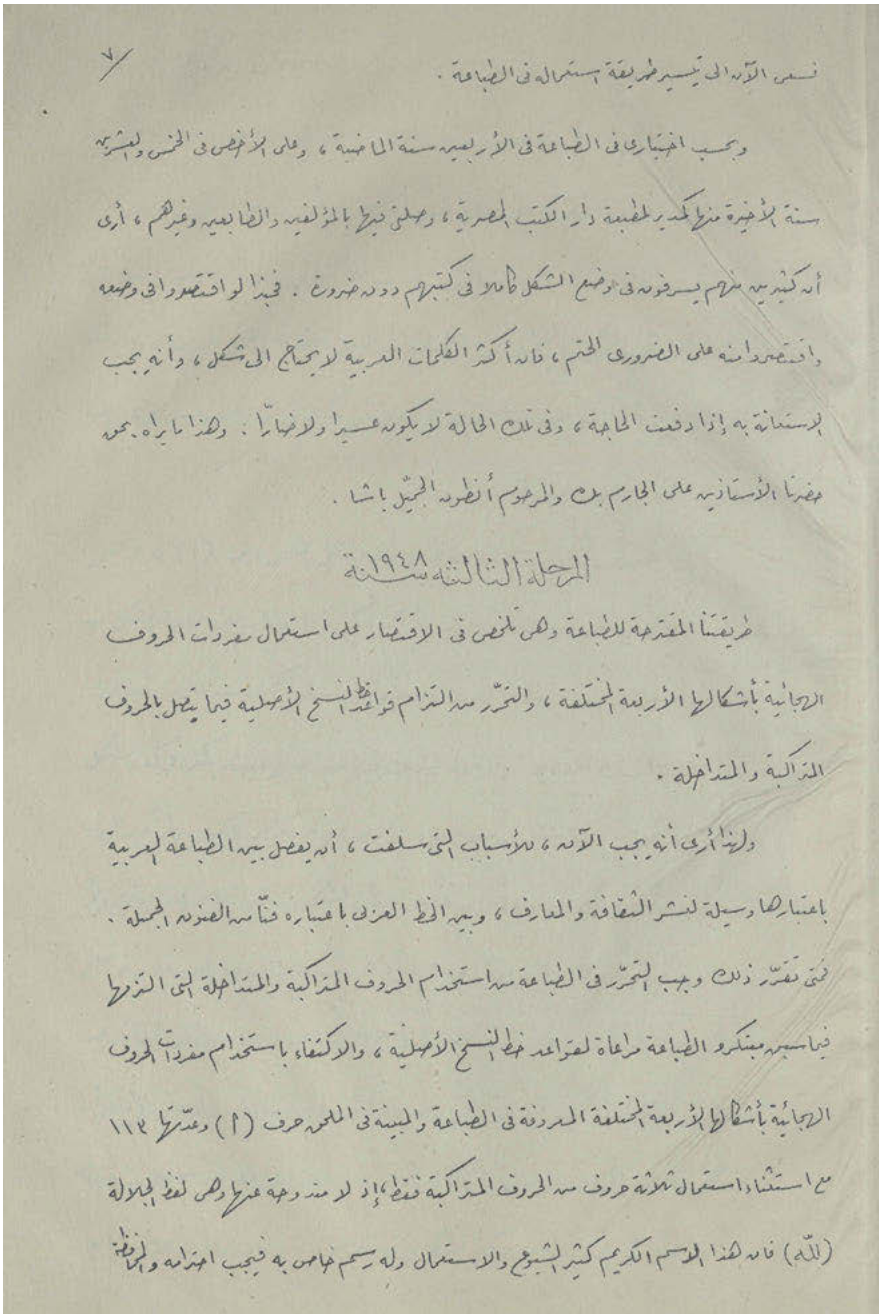 ٧
فنسعى الآن الى تيسير طريقة استعماله فى الطباعة .
وبحسب اختبارى فى الطباعة فى الأربعين سنة الماضية ، وعلى الأخص فى الخمس والعشرين
سنة الأخيرة منها كمدير لمطبعة دار الكتب المصرية ، وصلتى فيها بالمؤلفين والطابعين وغيرهم ، أرى
أن كثيرين منهم يسرفون فى وضع الشكل كاملا فى كتبهم دون ضرورة . فحبذا لو اقتصدوا فى وضعه
واقتصروا منه على الضرورى المحتم ، فان أكثر الكلمات العربية لا يحتاج الى شكل ، وأنه يجب
الاستعانة به إذا دفعت الحاجة ، وفى تلك الحالة لا يكون عسيرا ولا ضارّا . وهذا ما يراه بحق
حضرتا الأستاذين على الجارم بك والمرحوم أنطون الجميّل باشا .
المرحلة الثالثه سنة ١٩٤٨
طريقتنا المقترحة للطباعة وهى تلخص فى الاقتصار على استعمال مفردات الحروف
الهجائية بأشكالها الأربعة المختلفة ، والتحرّر من التزام قواعد خط النسخ الأصلية فيما يتصل بالحروف
المتراكبة والمتداخلة .
ولهذا أرى أنه يجب الآن ، للأسباب التى سلفت ، أن يفصل بين الطباعة العربية
باعتبارها وسيلة لنشر الثقافة والمعارف ، وبين الخط العربى باعتباره فنّا من الفنون الجميلة .
فمتى تقرّر ذلك وجب التحرّر فى الطباعة من استخدام الحروف المتراكبة والمتداخلة التى التزمها
فيما سبق مبتكرو الطباعة مراعاة لقواعد خط النسخ الأصلية ، والاكتفاء باستخدام مفردات الحروف
الهجائية بأشكالها الأربعة المختلفة المعروفة فى الطباعة والمبينة فى الملحق حرف (أ) وعدّتها ١١٣
مع استثناء استعمال ثلاثة حروف من الحروف المتراكبة فقط ، إذ لا مندوحة عنها وهى لفظ الجلالة
(الله) فان هذا الاسم الكريم كثير الشيوع والاستعمال وله رسم خاص به فيجب احترامه والمحافظة